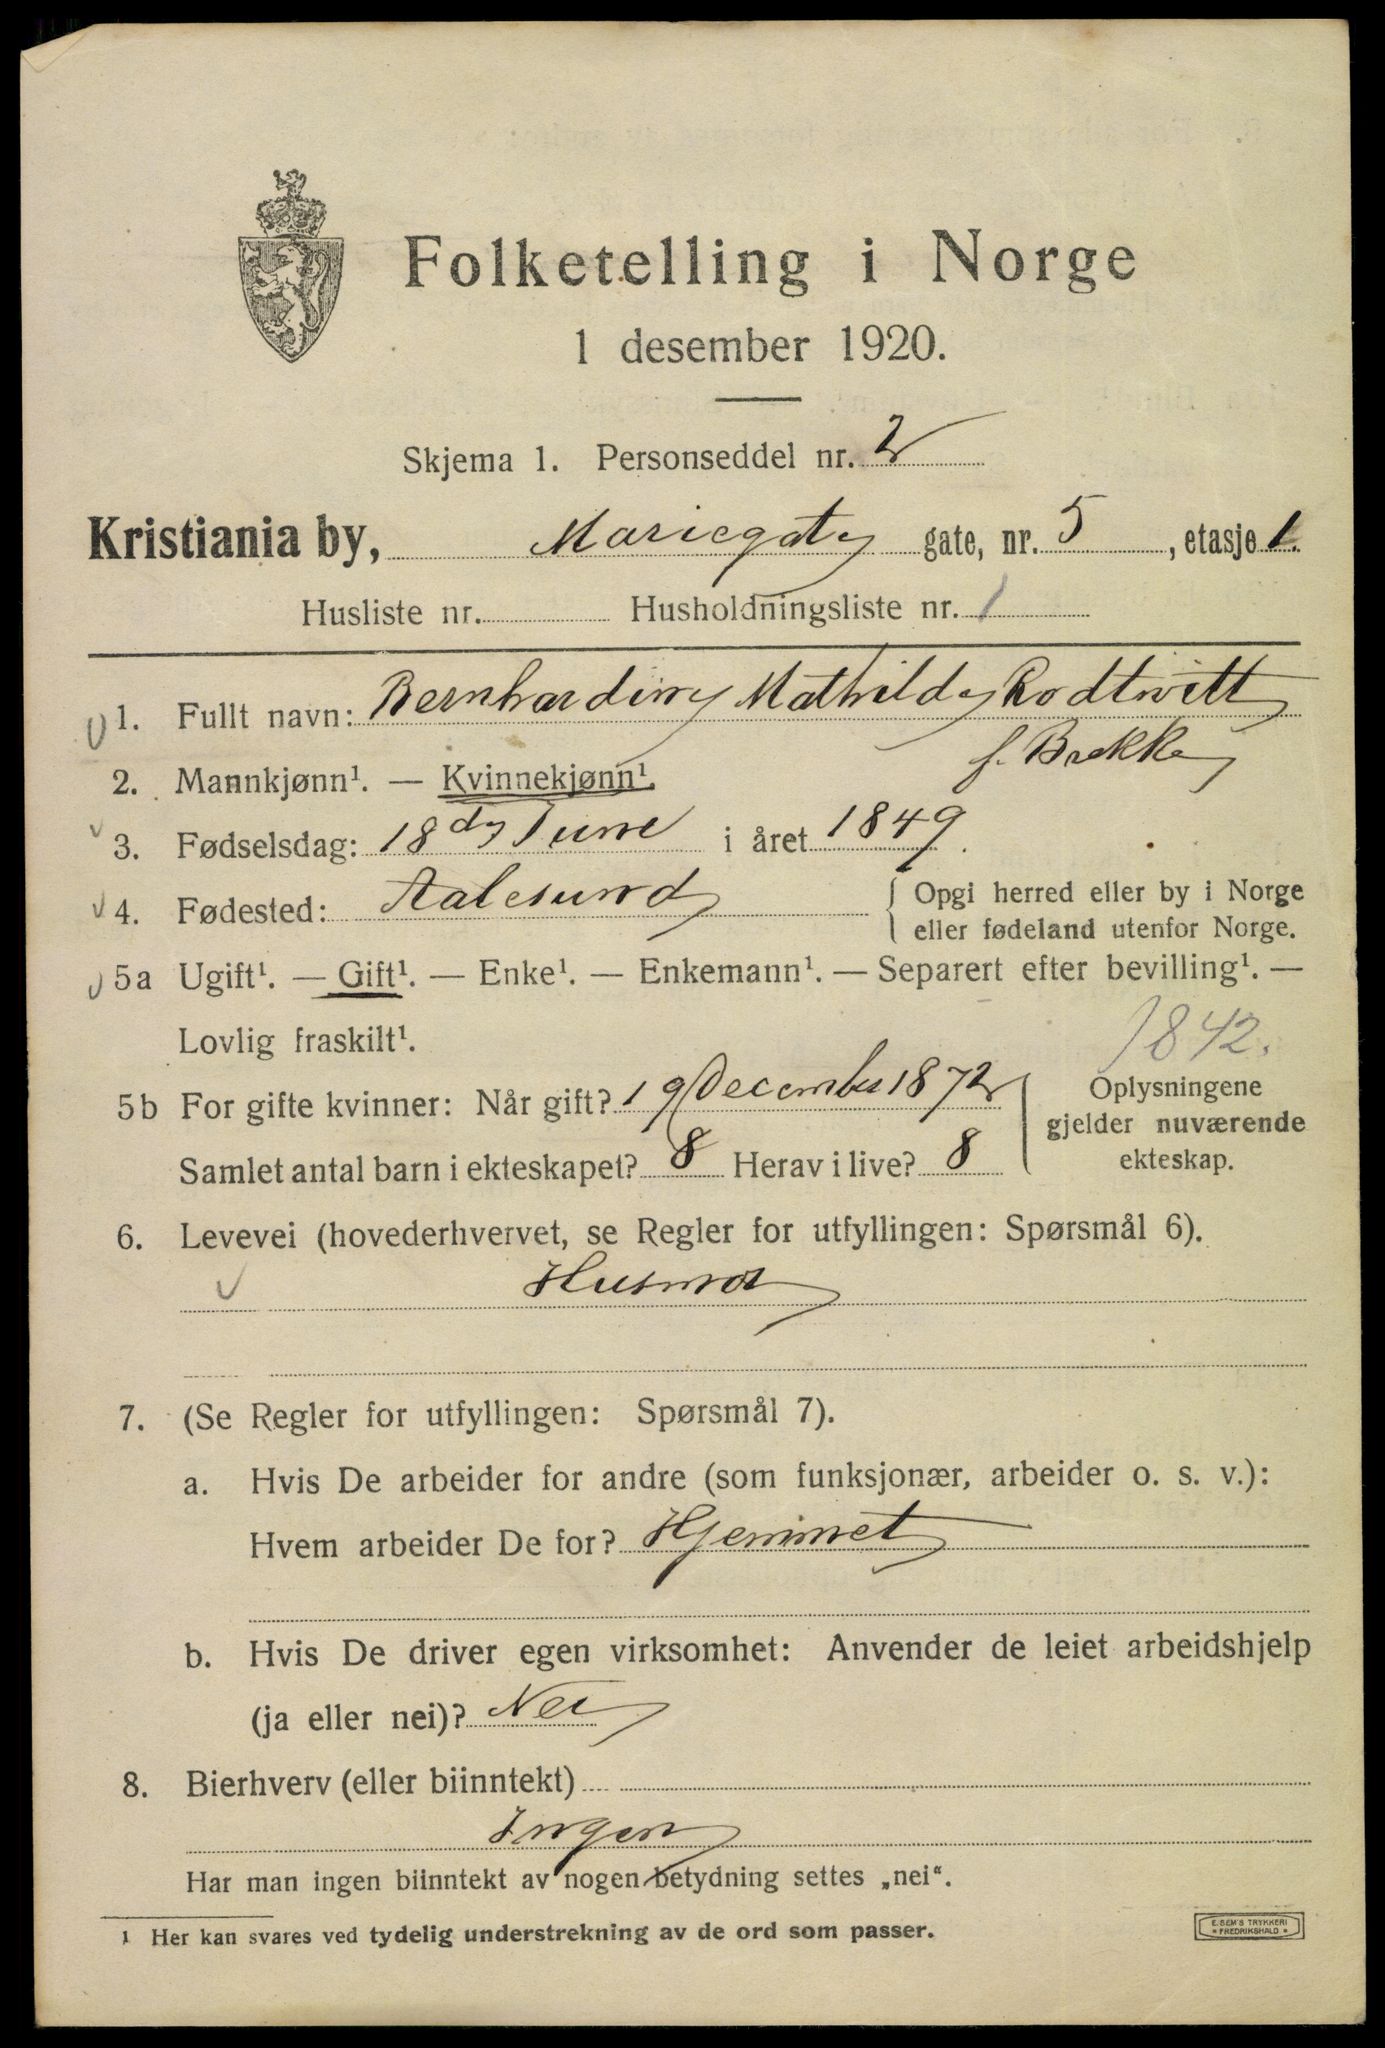 Folketelling i Norge
1 desember 1920.
Skjema 1. Personseddel nr. 2
Kristiania by, Mariegate gate, nr. 5, etasje 1.
Husliste nr. Husholdningsliste nr. 1
1. Fullt navn: Bernhardine Mathilde Rodtwitt
f. Brekke
2. Mannkjønn¹. — Kvinnekjønn¹.
3. Fødselsdag: 18de June i året 1849.
4. Fødested: Aalesund { Opgi herred eller by i Norge
eller fødeland utenfor Norge.
5a Ugift¹. — Gift¹. — Enke¹. — Enkemann¹. — Separert efter bevilling¹. —
Lovlig fraskilt¹.
1842.
5b For gifte kvinner: Når gift? 19 December 1872
Samlet antal barn i ekteskapet? 8 Herav i live? 8
Oplysningene
gjelder nuværende
ekteskap.
6. Levevei (hovederhvervet, se Regler for utfyllingen: Spørsmål 6).
Husmor
7. (Se Regler for utfyllingen: Spørsmål 7).
a. Hvis De arbeider for andre (som funksjonær, arbeider o. s. v.):
Hvem arbeider De for? Hjemmet
b. Hvis De driver egen virksomhet: Anvender de leiet arbeidshjelp
(ja eller nei)? Nei
8. Bierhverv (eller biinntekt)
Ingen
Har man ingen biinntekt av nogen betydning settes „nei“.
1 Her kan svares ved tydelig understrekning av de ord som passer.
E. SEM'S TRYKKERI
* FREDRIKSHALD *